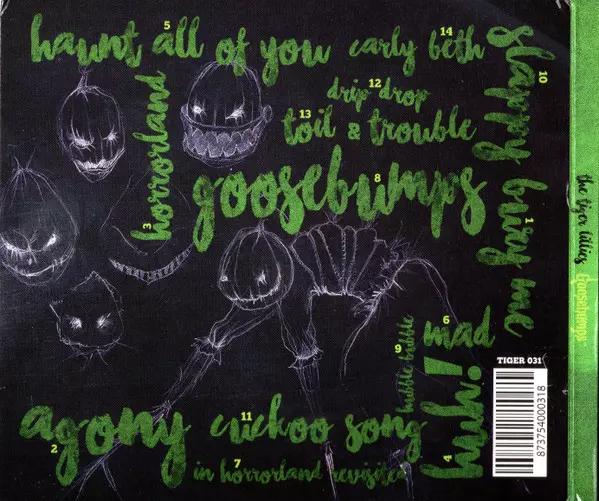 5
haunt all of you
14
carly beth
10
slappy
12
drip drop
13
toil & trouble
3
horrorland
8
goosebumps
1
bury me
6
mad
9
bubble bubble
4
huh!
2
agony
11
cuckoo song
7
in horrorland revisited
TIGER 031
873754000318
the tiger lillies
Goosebumps